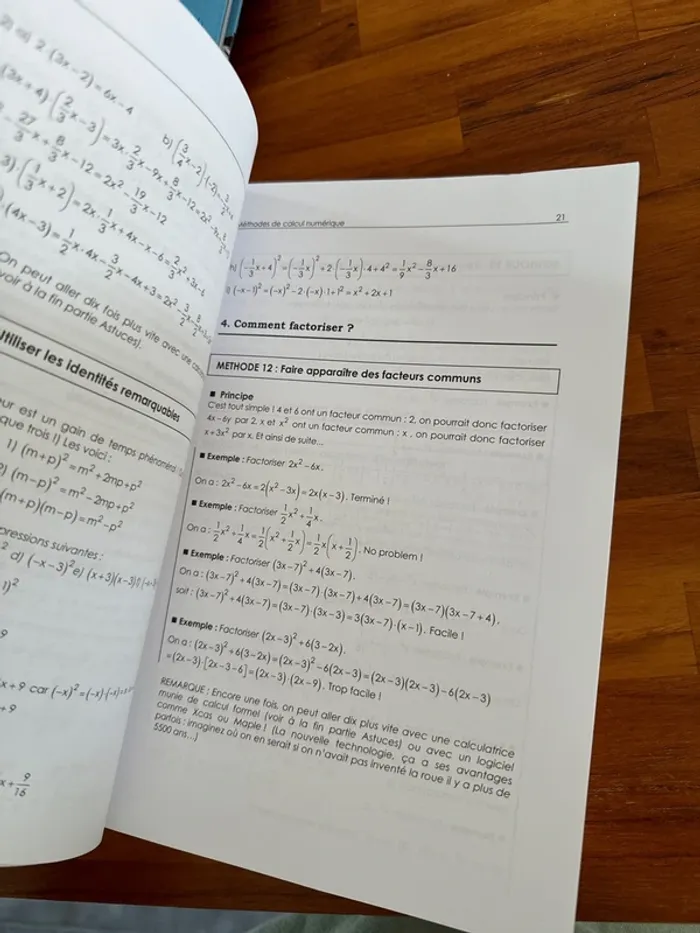 2) a) 2·(3x−2)=6x−4
b) (3/4 x−2)(−2)=−3/2
(3x+4)·(2/3 x−3)=3x·2/3 x−9x+8/3 x−12=2x²−9x+8/3
−27/3 x+8/3 x−12=2x²−19/3 x−12
3)·(1/3 x+2)=2x·1/3 x+4x−x−6=2/3 x²+3x−6
·(4x−3)=1/2 x·4x−3/2 x−4x+3=2x²−3/2 x−8/2 x+3
On peut aller dix fois plus vite avec une
voir à la fin partie Astuces).
Utiliser les identités remarquables
eur est un gain de temps phénoménal
que trois !) Les voici :
1) (m+p)²=m²+2mp+p²
2) (m−p)²=m²−2mp+p²
(m+p)(m−p)=m²−p²
pressions suivantes :
² d) (−x−3)² e) (x+3)(x−3)
1)²
9
x+9 car (−x)²=(−x)·(−x)
+9
x+9/16
Méthodes de calcul numérique 21
h) (−1/3 x+4)²=(−1/3 x)²+2·(−1/3 x)·4+4²=1/9 x²−8/3 x+16
i) (−x−1)²=(−x)²−2·(−x)·1+1²=x²+2x+1
4. Comment factoriser ?
METHODE 12 : Faire apparaître des facteurs communs
■ Principe
C'est tout simple ! 4 et 6 ont un facteur commun : 2, on pourrait donc factoriser
4x−6y par 2, x et x² ont un facteur commun : x, on pourrait donc factoriser
x+3x² par x. Et ainsi de suite...
■ Exemple : Factoriser 2x²−6x.
On a : 2x²−6x=2(x²−3x)=2x(x−3). Terminé !
■ Exemple : Factoriser 1/2 x²+1/4 x.
On a : 1/2 x²+1/4 x=1/2(x²+1/2 x)=1/2 x(x+1/2). No problem !
■ Exemple : Factoriser (3x−7)²+4(3x−7).
On a : (3x−7)²+4(3x−7)=(3x−7)·(3x−7)+4(3x−7)=(3x−7)(3x−7+4),
soit : (3x−7)²+4(3x−7)=(3x−7)·(3x−3)=3(3x−7)·(x−1). Facile !
■ Exemple : Factoriser (2x−3)²+6(3−2x).
On a : (2x−3)²+6(3−2x)=(2x−3)²−6(2x−3)=(2x−3)(2x−3)−6(2x−3)
=(2x−3)·[2x−3−6]=(2x−3)·(2x−9). Trop facile !
REMARQUE : Encore une fois, on peut aller dix plus vite avec une calculatrice
munie de calcul formel (voir à la fin partie Astuces) ou avec un logiciel
comme Xcas ou Maple ! (La nouvelle technologie, ça a ses avantages
parfois : imaginez où on en serait si on n'avait pas inventé la roue il y a plus de
5500 ans...)